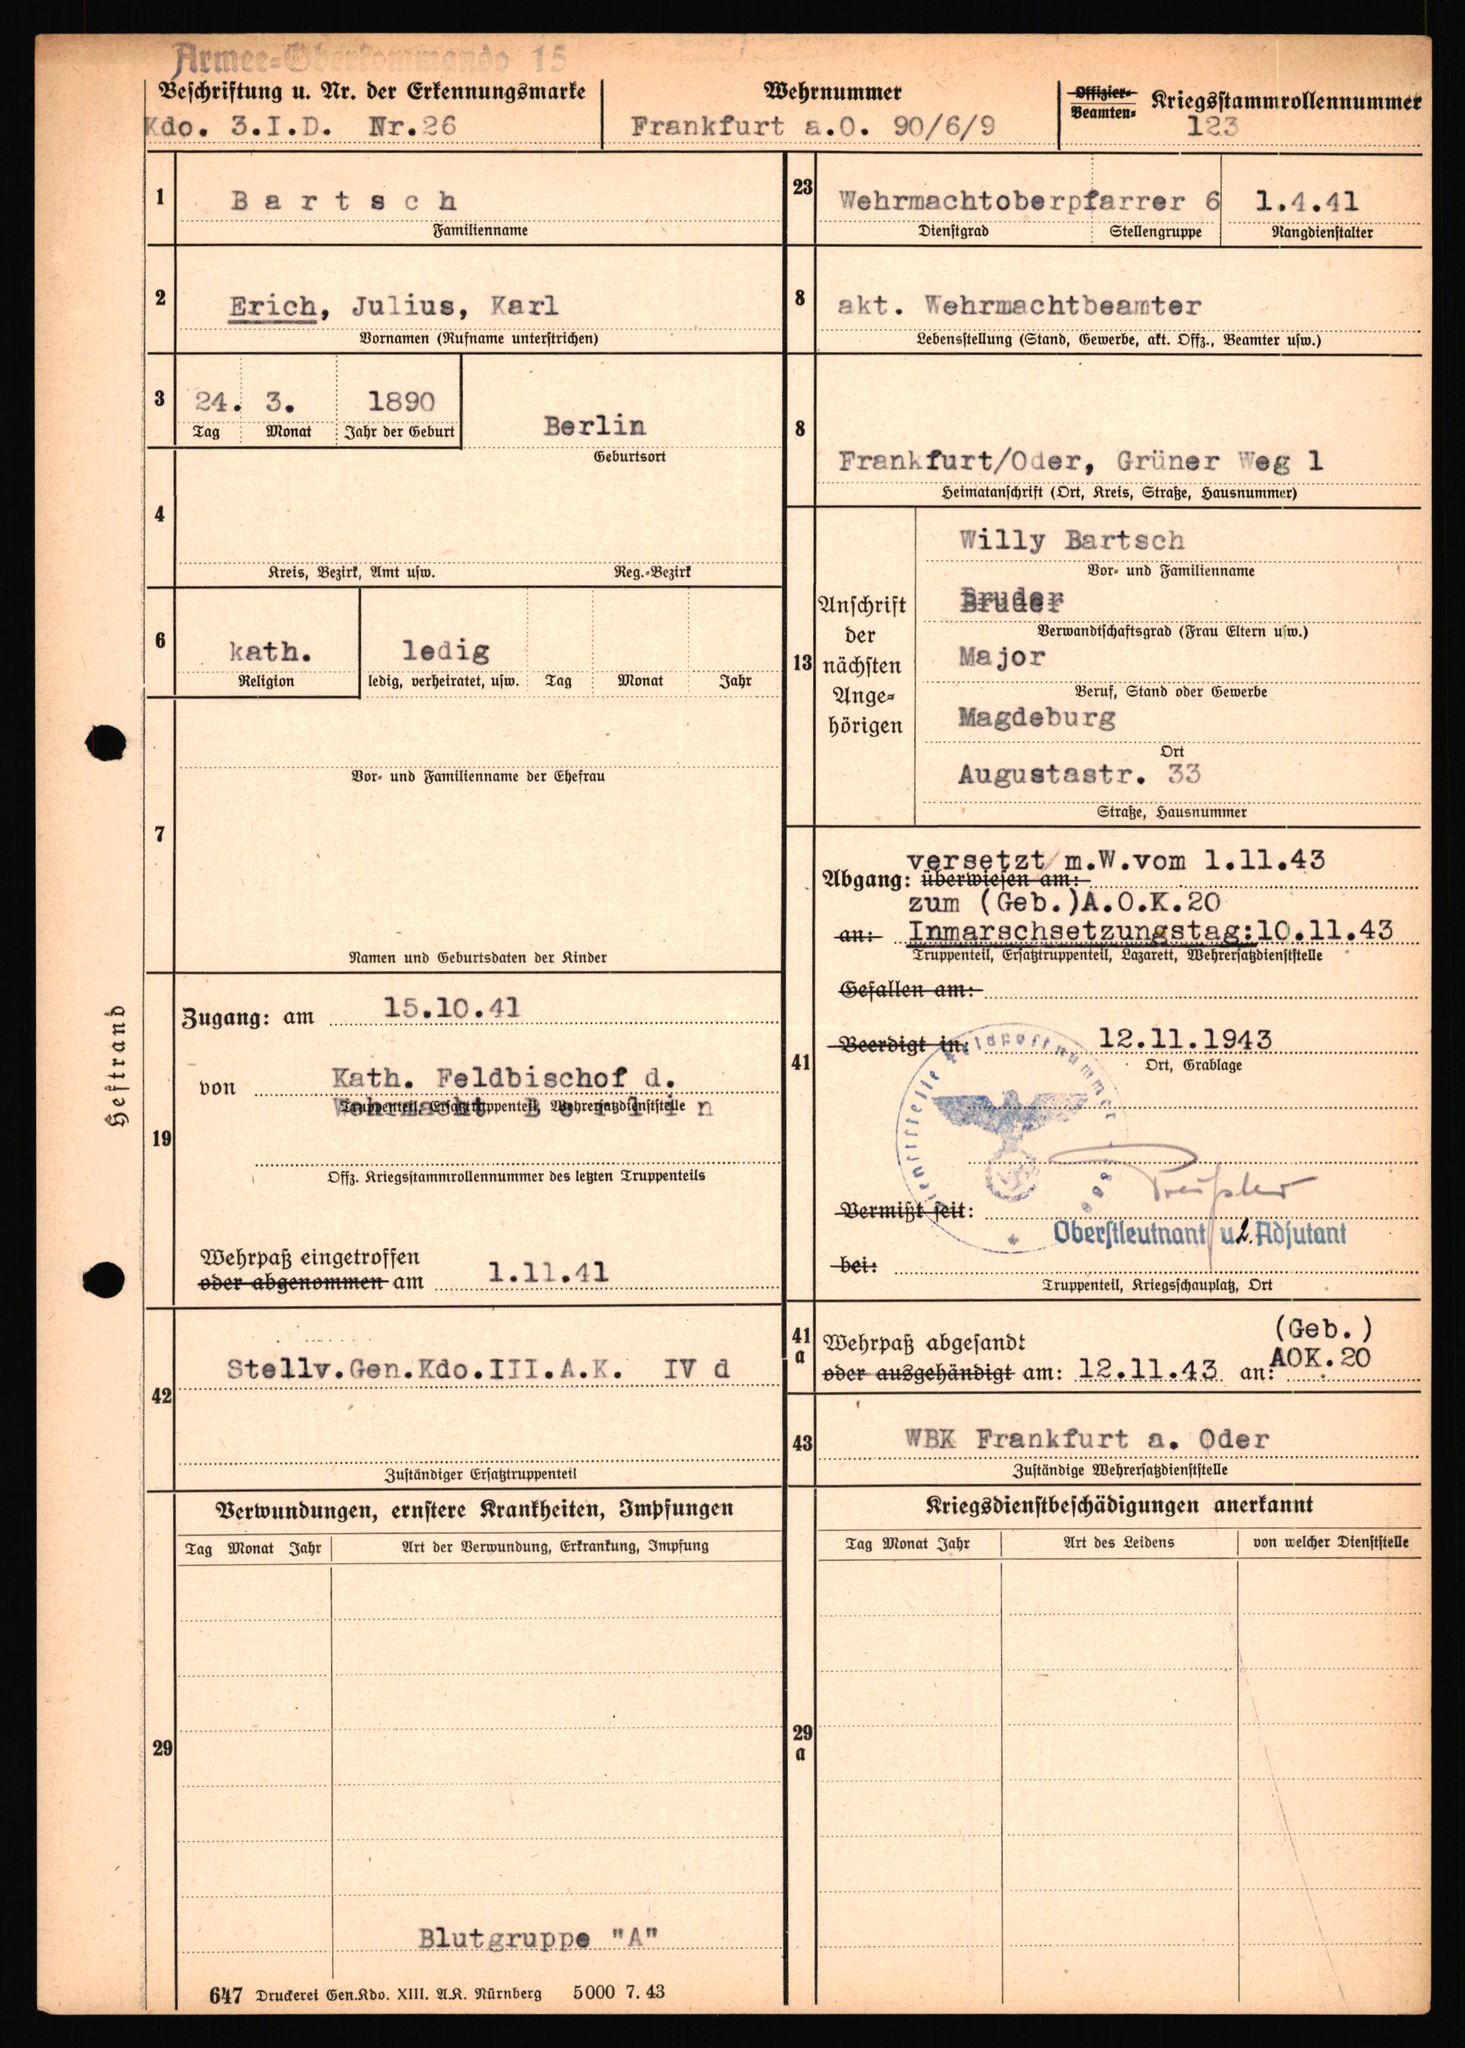 Armee-Oberkommando 15
Beschriftung u. Nr. der Erkennungsmarke
Kdo. 3.I.D. Nr.26
Wehrnummer
Frankfurt a.O. 90/6/9
Offizier-
Beamten-
Kriegsstammrollennummer
123
1
Bartsch
Familienname
2
Erich, Julius, Karl
Vornamen (Rufname unterstrichen)
3
24. 3. 1890
Tag Monat Jahr der Geburt
Berlin
Geburtsort
4
Kreis, Bezirk, Amt usw. Reg.-Bezirk
6
kath. ledig
Religion ledig, verheiratet, usw. Tag Monat Jahr
7
Vor- und Familienname der Ehefrau
Namen und Geburtsdaten der Kinder
Heftrand
19
Zugang: am 15.10.41
von Kath. Feldbischof d.
Wehrmacht Berlin
Truppenteil, Ersatztruppenteil, Wehrersatzdienststelle
Offz. Kriegsstammrollennummer des letzten Truppenteils
Wehrpaß eingetroffen
oder abgenommen am 1.11.41
42
Stellv.Gen.Kdo.III.A.K. IV d
Zuständiger Ersatztruppenteil
Verwundungen, ernstere Krankheiten, Impfungen
Tag Monat Jahr Art der Verwundung, Erkrankung, Impfung
29
Blutgruppe "A"
647 Druckerei Gen.Kdo. XIII. A.K. Nürnberg 5000 7. 43
23
Wehrmachtoberpfarrer 6 1.4.41
Dienstgrad Stellengruppe Rangdienstalter
8
akt. Wehrmachtbeamter
Lebensstellung (Stand, Gewerbe, akt. Offz., Beamter usw.)
8
Frankfurt/Oder, Grüner Weg 1
Heimatanschrift (Ort, Kreis, Straße, Hausnummer)
13
Anschrift
der
nächsten
Ange-
hörigen
Willy Bartsch
Vor- und Familienname
Bruder
Verwandtschaftsgrad (Frau Eltern usw.)
Major
Beruf, Stand oder Gewerbe
Magdeburg
Ort
Augustastr. 33
Straße, Hausnummer
41
versetzt m.W.vom 1.11.43
Abgang: überwiesen am:
zum (Geb.)A.O.K.20
an: Inmarschsetzungstag:10.11.43
Truppenteil, Ersatztruppenteil, Lazarett, Wehrersatzdienststelle
Gefallen am:
Beerdigt in: 12.11.1943
Ort, Grablage
Dienststelle Feldpostnummer
Vermißt seit:
Oberstleutnant u 2. Adjutant
bei:
Truppenteil, Kriegsschauplatz, Ort
41
a
Wehrpaß abgesandt
oder ausgehändigt am: 12.11.43 an:
(Geb.)
AOK.20
43
WBK Frankfurt a. Oder
Zuständige Wehrersatzdienststelle
Kriegsdienstbeschädigungen anerkannt
Tag Monat Jahr Art des Leidens von welcher Dienststelle
29
a